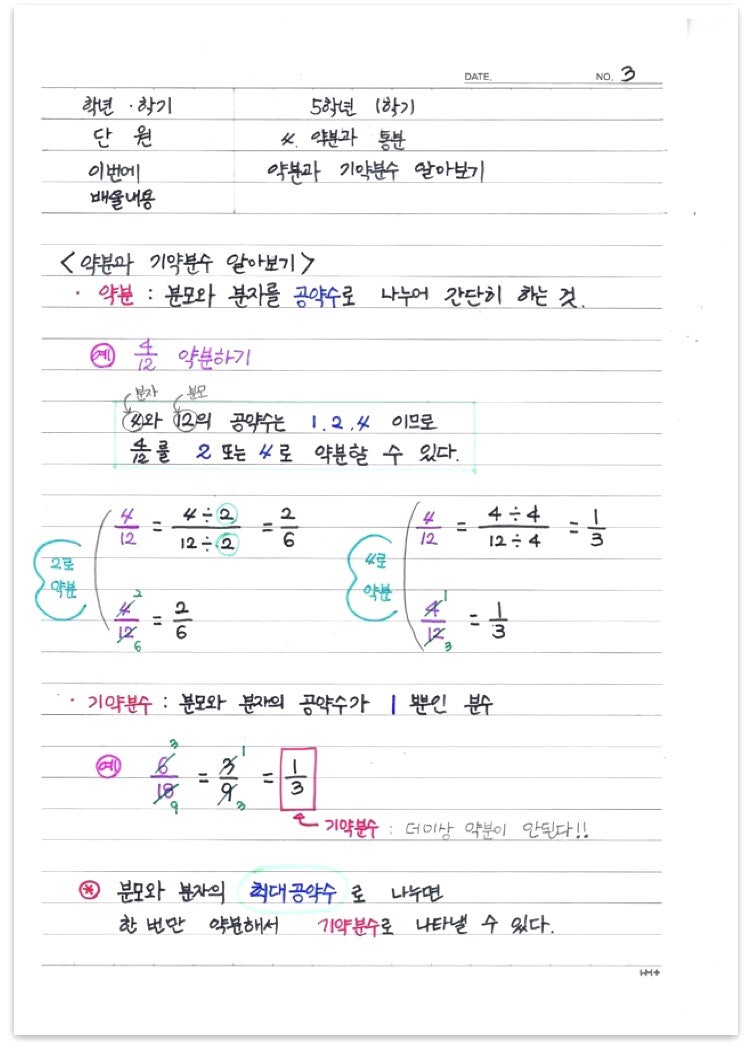 DATE. NO. 3
학년·학기 5학년 1학기
단 원 4. 약분과 통분
이번에 약분과 기약분수 알아보기
배울내용
<약분과 기약분수 알아보기>
· 약분 : 분모와 분자를 공약수로 나누어 간단히 하는 것.
예 4/12 약분하기
분자 분모
4와 12의 공약수는 1, 2, 4 이므로
4/12를 2 또는 4로 약분할 수 있다.
2로 약분
4/12 = 4÷2/12÷2 = 2/6
4/12 2 6 = 2/6
4로 약분
4/12 = 4÷4/12÷4 = 1/3
4/12 1 3 = 1/3
· 기약분수 : 분모와 분자의 공약수가 1 뿐인 분수
예 6/18 3 9 = 3/9 1 3 = 1/3
기약분수 : 더이상 약분이 안된다!!
* 분모와 분자의 최대공약수로 나누면
한 번만 약분해서 기약분수로 나타낼 수 있다.